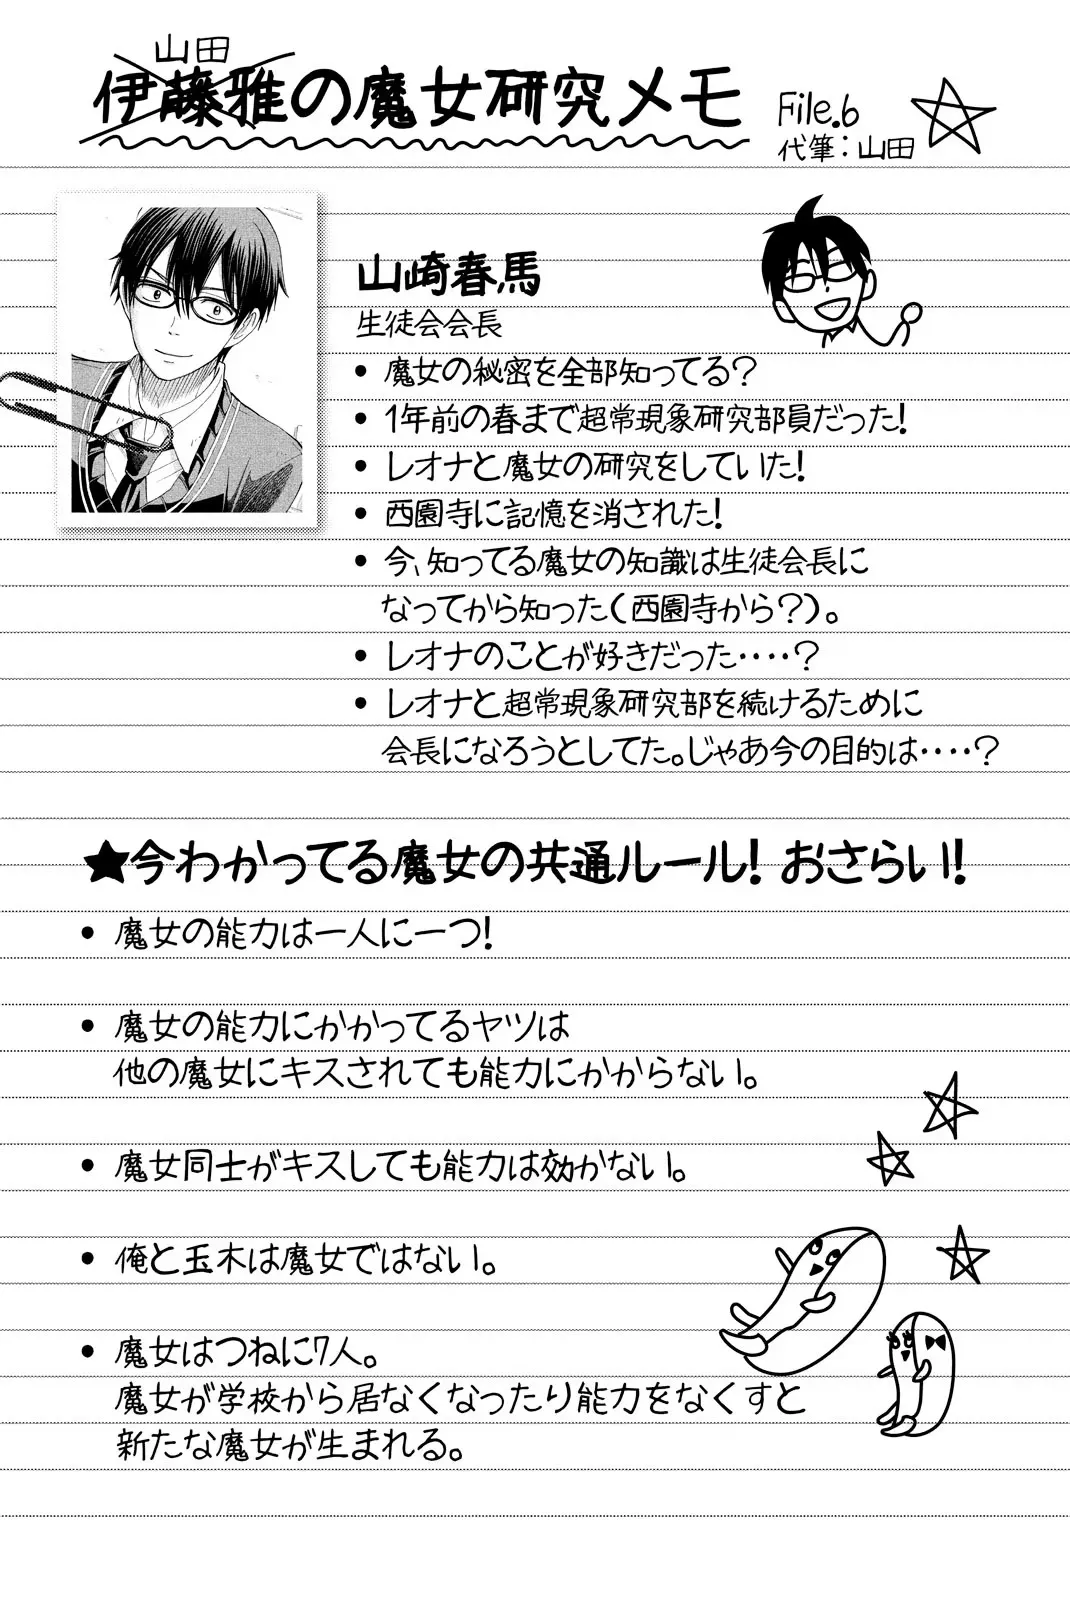 山田
伊藤雅の魔女研究メモ
File.6
代筆：山田
山崎春馬
生徒会会長
• 魔女の秘密を全部知ってる？
• 1年前の春まで超常現象研究部員だった！
• レオナと魔女の研究をしていた！
• 西園寺に記憶を消された！
• 今、知ってる魔女の知識は生徒会長に
なってから知った（西園寺から？）。
• レオナのことが好きだった‥‥？
• レオナと超常現象研究部を続けるために
会長になろうとしてた。じゃあ今の目的は‥‥？
★今わかってる魔女の共通ルール！ おさらい！
• 魔女の能力は一人に一つ！
• 魔女の能力にかかってるヤツは
他の魔女にキスされても能力にかからない。
• 魔女同士がキスしても能力は効かない。
• 俺と玉木は魔女ではない。
• 魔女はつねに7人。
魔女が学校から居なくなったり能力をなくすと
新たな魔女が生まれる。